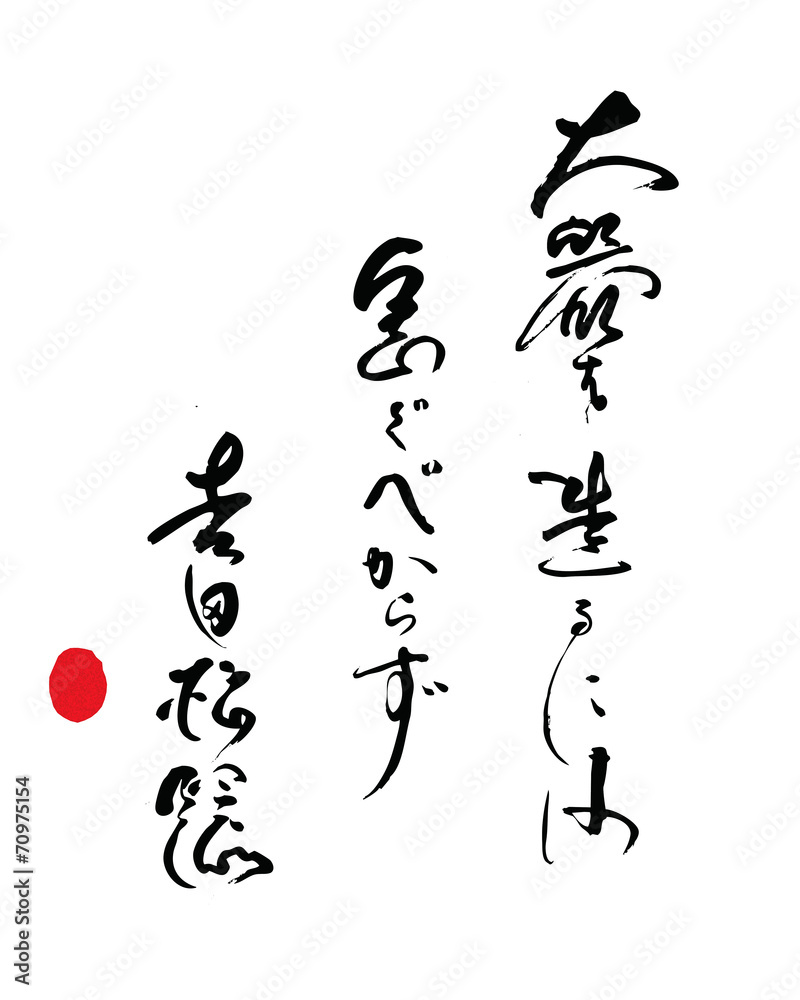 大器を造るには
急ぐべからず
吉田松陰
Adobe Stock | #70975154